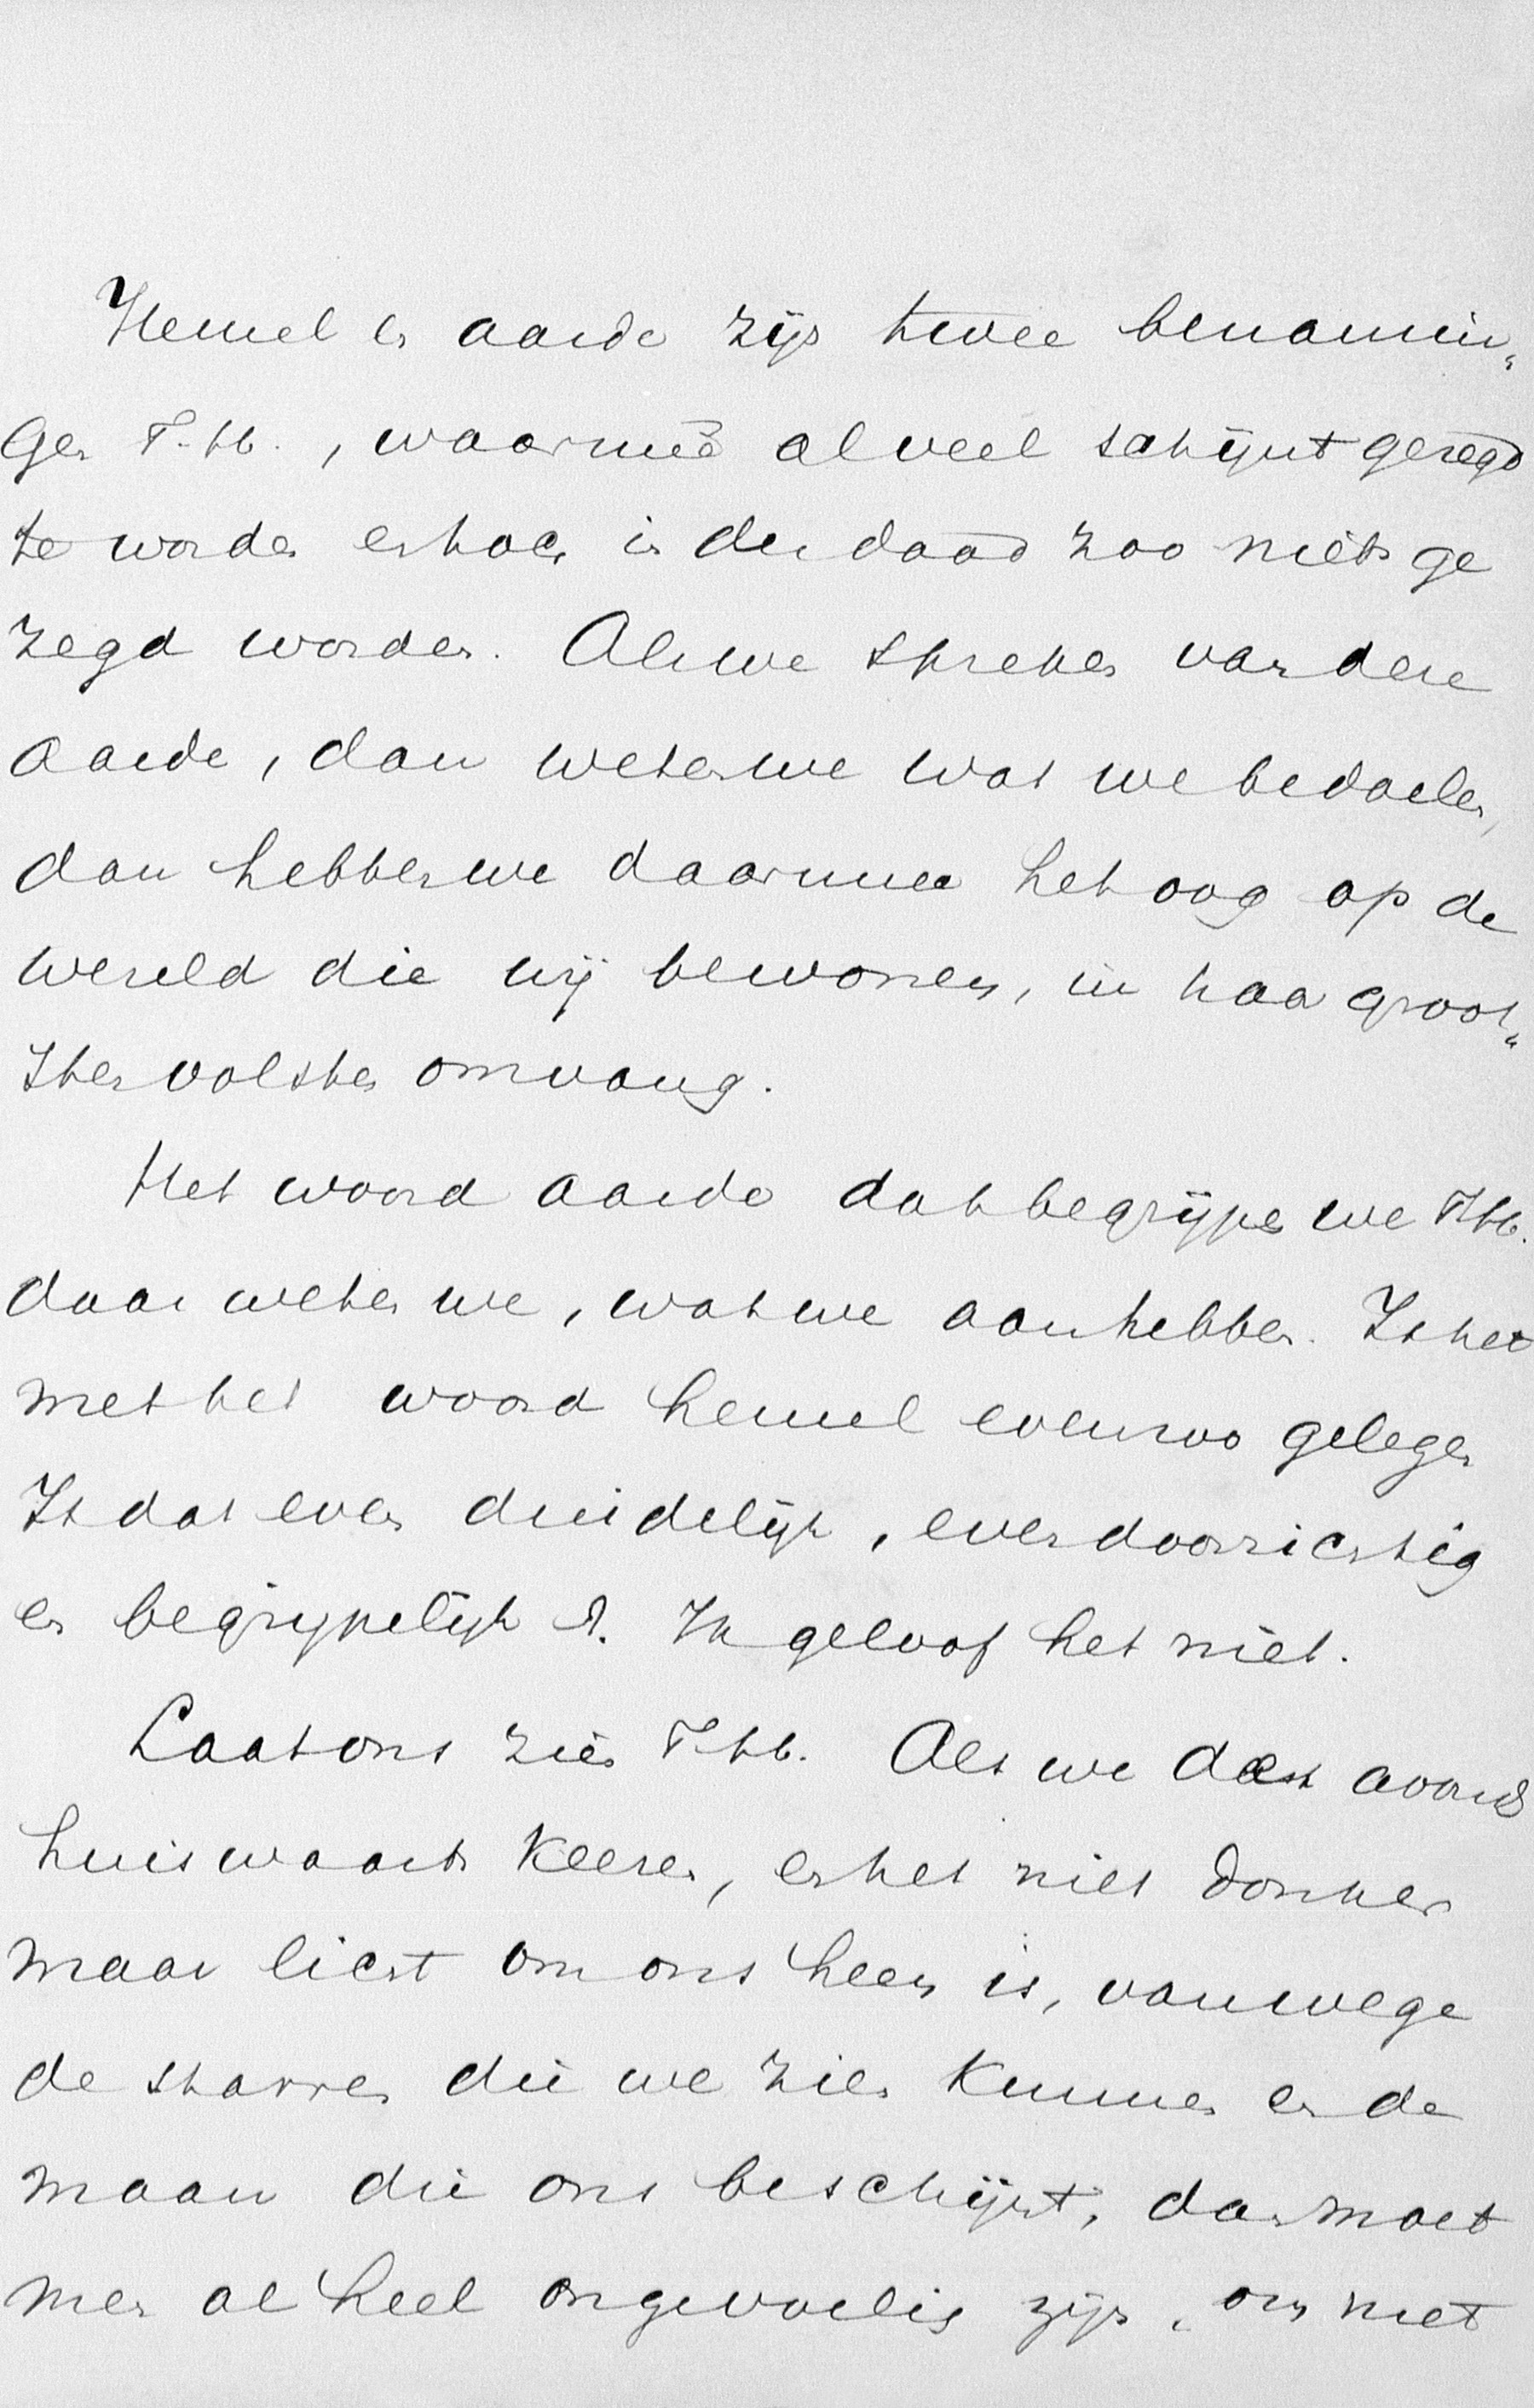 Hemel en aarde zijn twee benamin„
gen T.H., waarmeê al veel schijnt gezegd
te worden en toch in der daad zoo niets ge
zegd worden. Als we spreken van deze
aarde, dan weten we wat we bedoelen,
dan hebben we daarmee het oog op de
wereld die wij bewonen, in haar groot„
sten volsten omvang.
Het woord aarde dat begrijpen we T.H.
daar weten we, wat we aan hebben. Is het
met het woord hemel evenzoo gelegen
Is dat even duidelijk, even doorzichtig
en begrijpelijk? Ik geloof het niet.
Laat ons zien T.H. Als we des avonds
huiswaarts keeren, en het niet donker
maar licht om ons heen is, vanwege
de starren die we zien kunnen en de
maan die ons beschijnt, dan moet
men al heel ongevoelig zijn, om niet